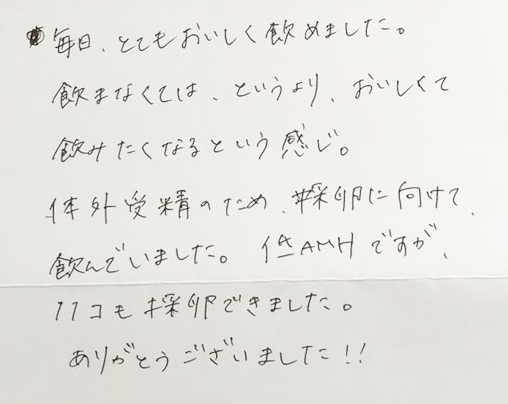 毎日、とてもおいしく飲めました。
飲まなくては、というより、おいしくて
飲みたくなるという感じ。
体外受精のため、採卵に向けて、
飲んでいました。低AMHですが、
11コも採卵できました。
ありがとうございました!!